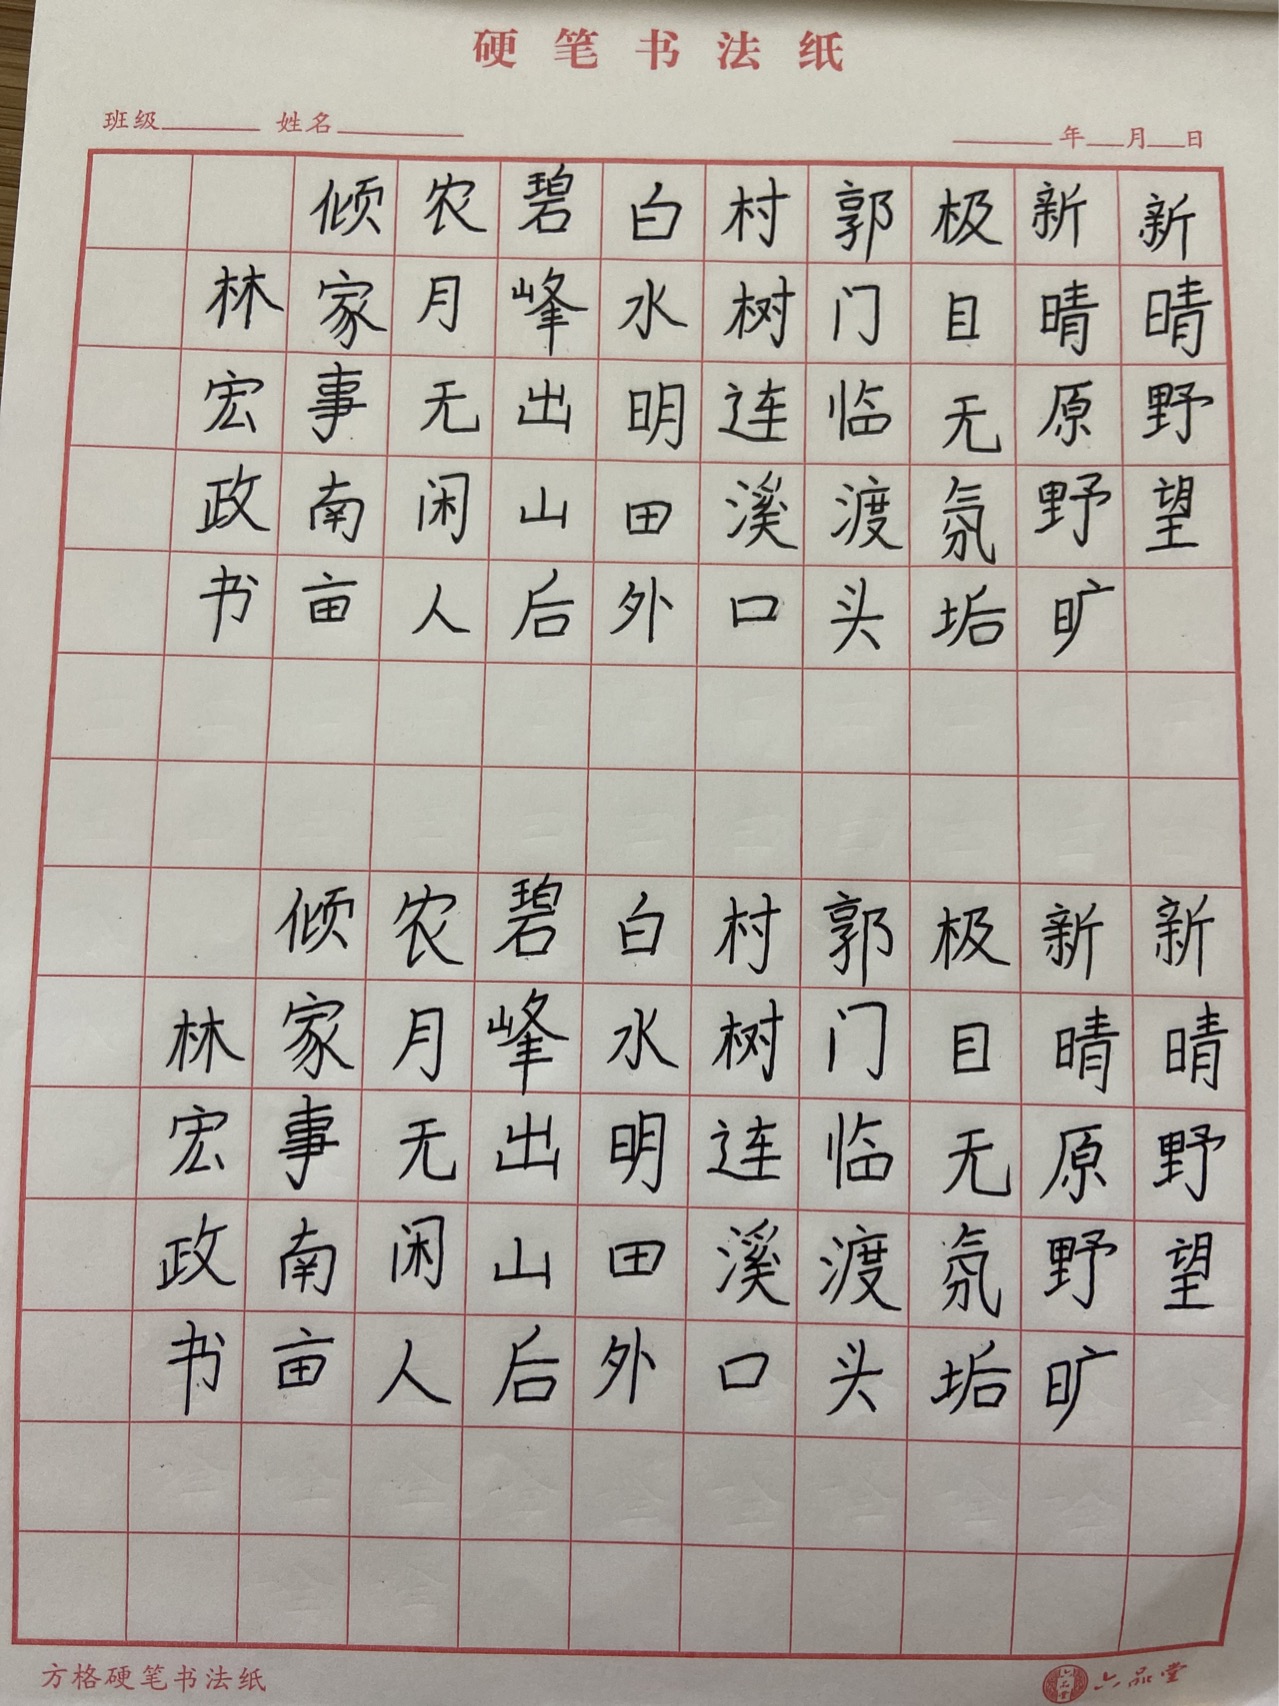 硬笔书法纸
班级 姓名 年 月 日
新晴野望
新晴原野旷
极目无氛垢
郭门临渡头
村树连溪口
白水明田外
碧峰出山后
农月无闲人
倾家事南亩
林宏政书
新晴野望
新晴原野旷
极目无氛垢
郭门临渡头
村树连溪口
白水明田外
碧峰出山后
农月无闲人
倾家事南亩
林宏政书
方格硬笔书法纸
六品堂